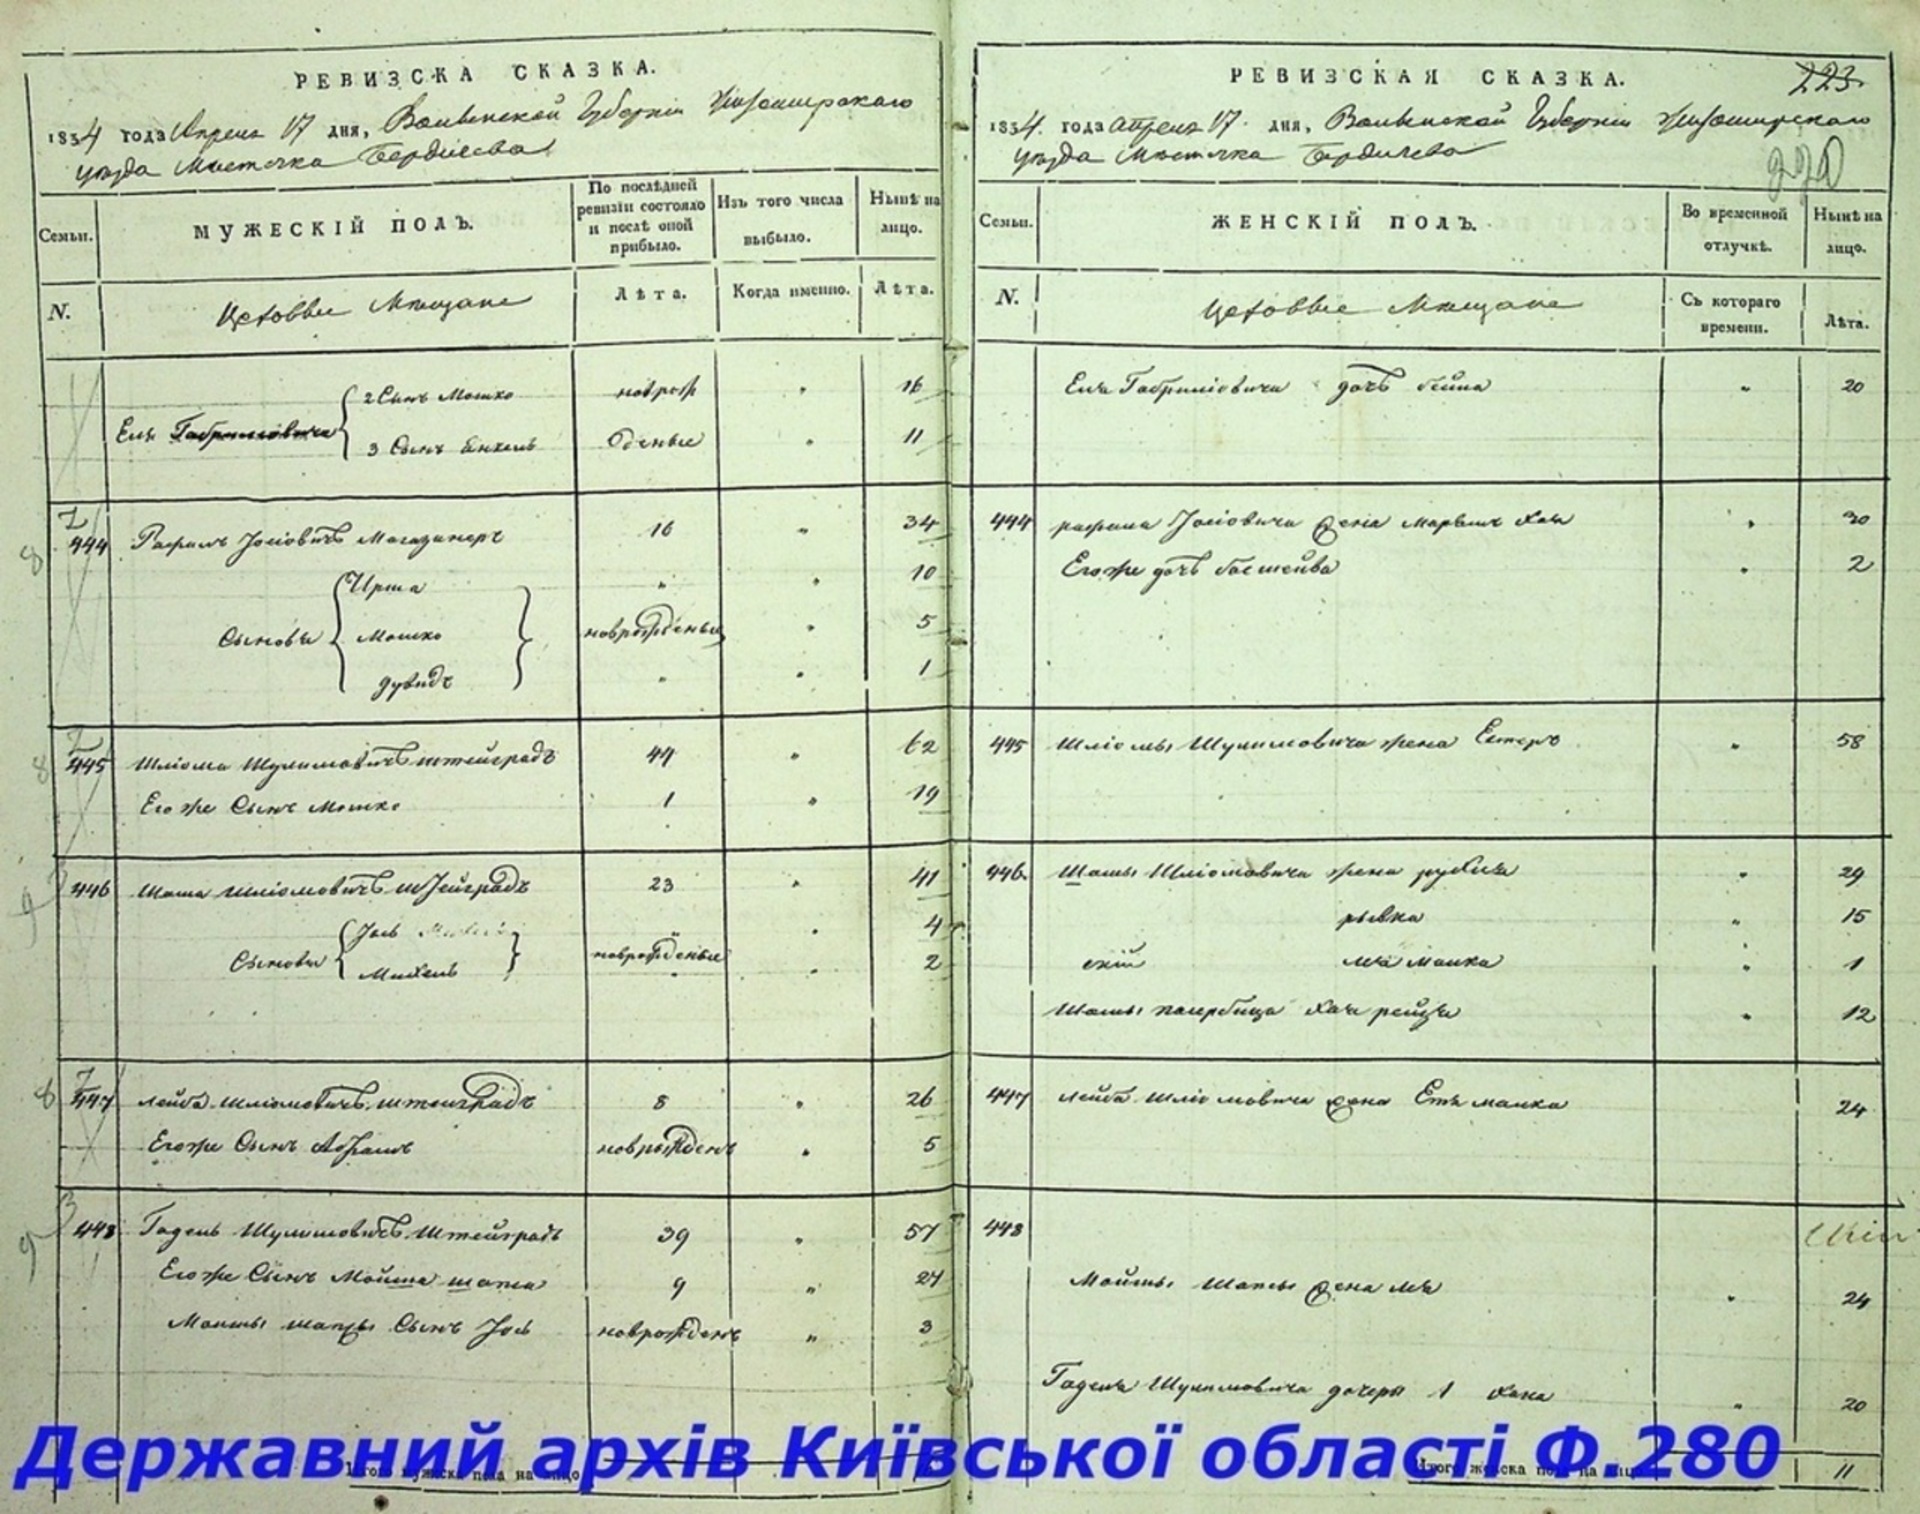 РЕВИЗСКА СКАЗКА.
1834 года Апреля 17 дня, Волынской Губерніи Житомирскаго
уѣзда Мѣстечка Бердичева
Семьи.
МУЖЕСКІЙ ПОЛЪ.
По послѣдней ревизіи состояло и послѣ оной прибыло.
Изъ того числа выбыло.
Нынѣ на лицо.
N.
Цеховые Мѣщане
Лѣта.
Когда именно.
Лѣта.
2 Сынъ Мошко новрож 16
Еля Габриловича
3 Сынъ Янкель деные 11
444 Рафаилъ Іосіовичъ Магазинеръ 16 34
Ирша 10
Сыновья Мошко новрожденые 5
Дувидъ 1
445 Шліома Шулимовичъ Штейградъ 44 62
Его же Сынъ Мошко 1 19
446 Шая Шліомовичъ Штейградъ 23 41
Іось 4
Сыновья новрожденые
Михель 2
447 Лейба Шліомовичъ Штейградъ 8 26
Его же Сынъ Абрамъ новрожденъ 5
448 Шулимовичъ Штейградъ 39 57
Его же Сынъ 9 27
Сынъ Іось новрожденъ 3
Итого мужска пола на лицо
РЕВИЗСКАЯ СКАЗКА.
223
1834 года апреля 17 дня, Волынской Губерніи Житомирскаго
уѣзда Мѣстечка Бердичева
Семьи.
ЖЕНСКІЙ ПОЛЪ.
Во временной отлучкѣ.
Нынѣ на лицо.
N.
Цеховые Мѣщане
Съ котораго времени.
Лѣта.
Еля Габриліовича дочь бейла 20
444 рафаила Іосіовича жена 30
Его же дочь басшейва 2
445 Шліомы Шулимовича жена Естеръ 58
446. Шліомовича жена 29
рывка 15
малка 1
12
447 Лейба Шліомовича жена малка 24
448
жена 24
Шулимовича дочери 1 хана 20
Итого женска пола на лицо 11
Державний архів Київської області Ф.280